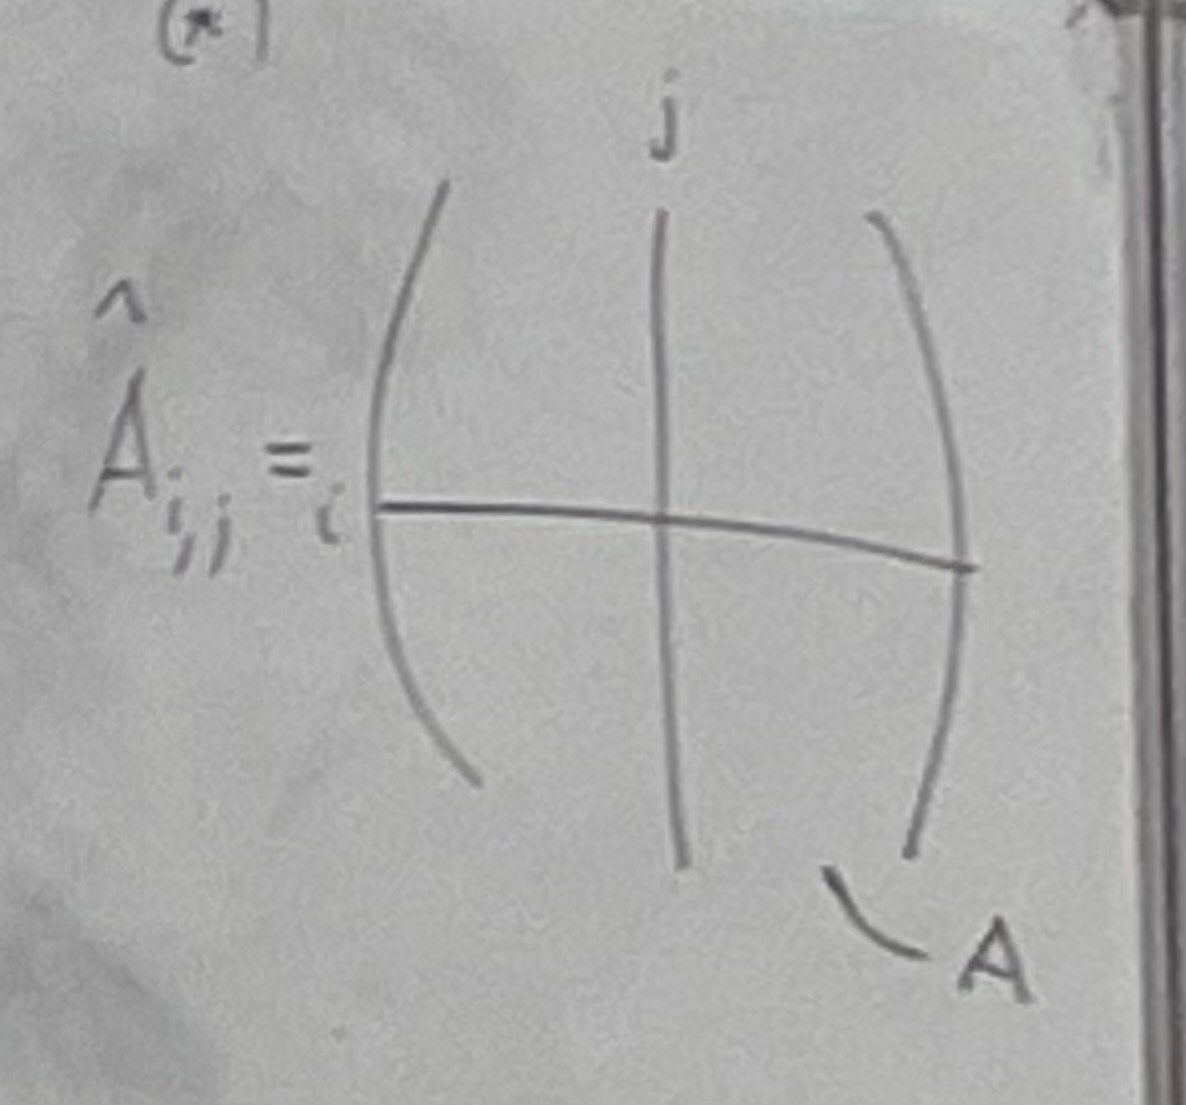 (*)
j
Â i,j = i
A